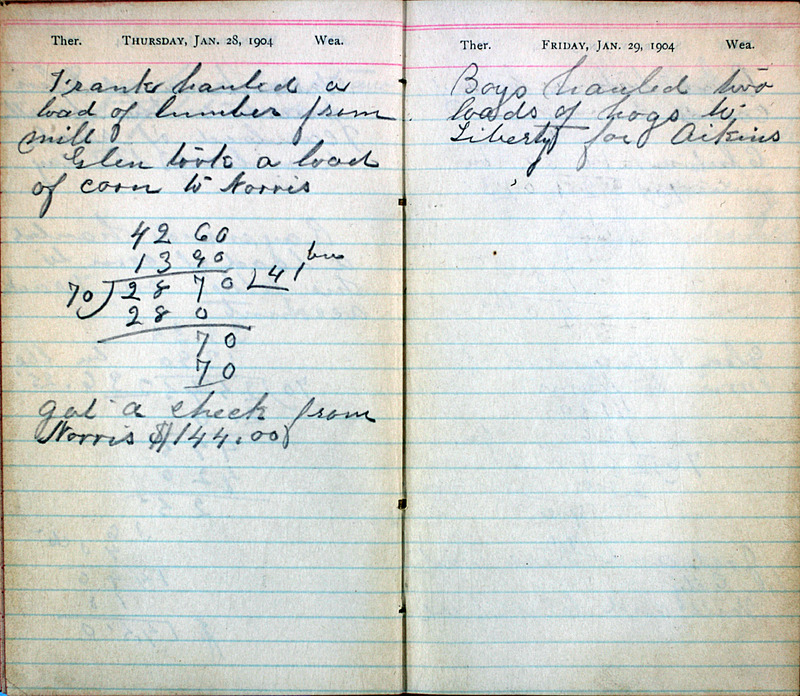 Ther. THURSDAY, JAN. 28, 1904 Wea.
Frank hauled a
load of lumber from
mill
Glen took a load
of corn to Norris
42 60
13 90
70 ) 28 70 41 bu
28 0
70
70
got a check from
Norris $144.00
Ther. FRIDAY, JAN. 29, 1904 Wea.
Boys hauled two
loads of hogs to
Liberty for Aikins